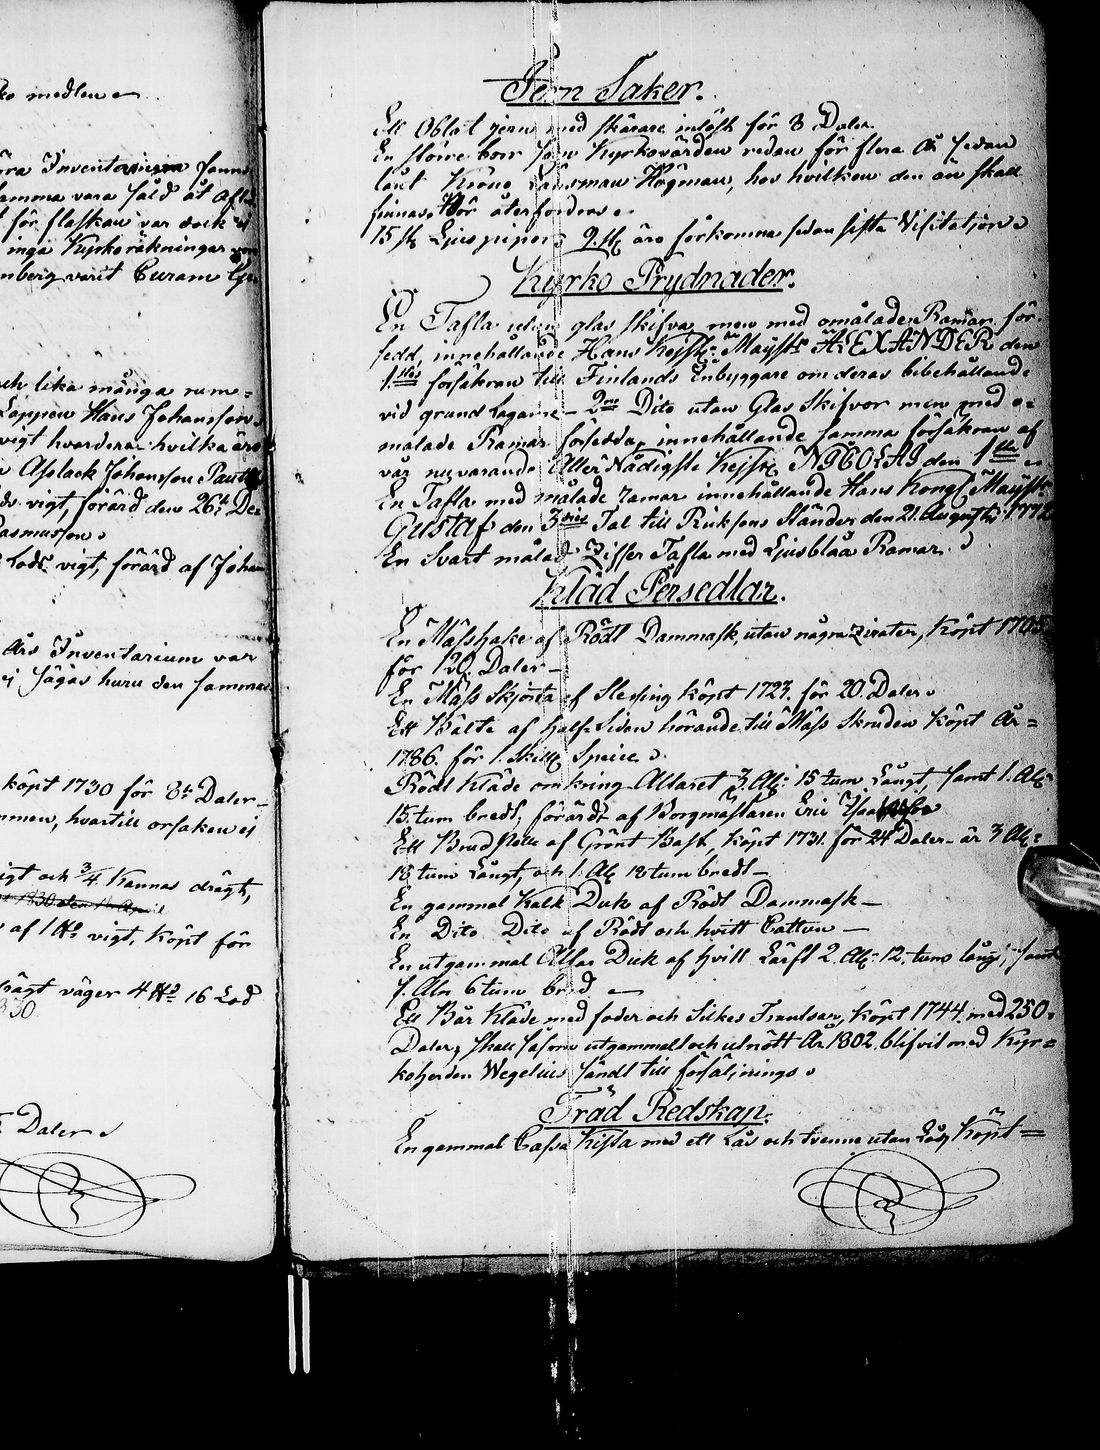 ko medlen
öra Inventarium
samma vara såld åt
för flaskan var
inga Kyrkoräkningar
nberg varit Curam
och lika många rum=
Lappen Hans Johansson
vigt hvardera hvilka äro
Aslack Johansson
vigt, förärd den 26t De
Rasmusson
Lods vigt, förärd af Johan
Års Inventarium var
ej sägas huru den samma
köpt 1730 för 8t Daler
hvartill orsaken ej
vigt och 3/4 Kannas drägt,
1830 den
af 1 vigt, köpt för
drägt väger 4 16 Lod
830.
Daler
Jern Saker.
Ett Oblat jern med skärare inlöst för 8 Daler
En större borr som Kyrkovärden redan för flera År sedan
lånt Krono Länsman Högman, hos hvilken den än skall
finnas, bör återfordras
15 st Ljuspipor, 9. st äro förkomna sedan sista Visitation
Kyrko Prydnader.
En Tafla utan glas skifva, men med omålade Ramar för=
sedd, innehållande Hans Kejsl: Maijsts ALEXANDER den
1stes försäkran till Finlands Inbyggare om deras bibehållande
vid grund Lagarne – 2ne Dito utan Glas Skifvor men med o=
målade Ramar försedda, innehållande samma försäkran af
vår nuvarande Aller Nådigste Kejsare NICOLAI den 1ste
En Tafla med målade ramar innehållande Hans Kongl Maijsts
Gustaf den 3dies Tal till Riksens Ständer den 21 Augusti 1772
En Svart målad Ziffer Tafla med Ljusblåa Ramar.
Kläd Persedlar.
En Mässhake af Rödt Dammask, utan några zirater, Köpt 1705
för 120 Daler –
En Mäss Skjorta af Slesing köpt 1723. för 20. Daler
Ett Bälte af half Siden hörande till Mäss Skruden Köpt År=
1786. för 1. Skill. Specie
Rödt Kläde omkring Altaret 3 Aln: 15 tum Långt, samt 1. Aln
15. tum bredt, förärdt af Borgmästaren Eric
Ett Brudpelle af Grönt Bast, köpt 1731. för 24 Daler – är 3 Aln:
18 tum Långt, och 1. Aln 18 tum bredt –
En gammal Kalk Duk af Rödt Dammask –
En Dito Dito af Rödt och hvitt Cattun –
En utgammal Altar Duk af hvitt Lärft 2. Aln 12. tum lång, samt
1. Aln 6 tum bred
Ett Bår Kläde med foder och Silkes Frantsar, köpt 1744. med 250=
Daler, skall såsom utgammalt och utnött År 1802. blifvit med Kyr=
koherden Wegelius sändt till försäljnings
Träd Redskap.
En gammal Cassa Kista med ett Lås och tvenne utan Lås, Köpt =